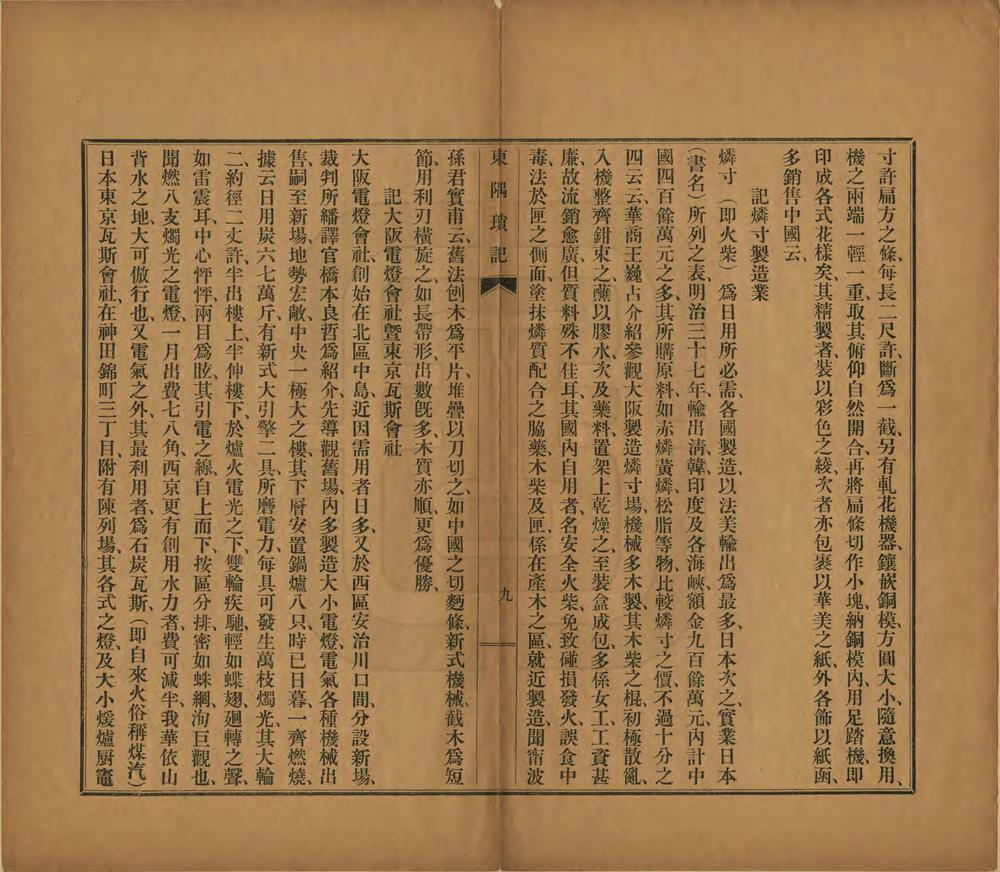 寸許扁方之條、每長二尺許、斷爲一截、另有軋花機器、鑲嵌銅模、方圓大小、隨意換用、
機之兩端、一輕一重、取其俯仰自然開合、再將扁條切作小塊、納銅模內、用足踏機、卽
印成各式花樣矣、其精製者、裝以彩色之綾、次者亦包裹以華美之紙、外各飾以紙函、
多銷售中國云、
記燐寸製造業
燐寸（卽火柴）爲日用所必需、各國製造、以法美輸出爲最多、日本次之、實業日本
（書名）所列之表、明治三十七年、輸出淸、韓、印度及各海峽、額金九百餘萬元、內計中
國四百餘萬元之多、其所購原料、如赤燐黃燐、松脂等物、比較燐寸之價、不過十分之
四云云、華商王巍占介紹參觀大阪製造燐寸場、機械多木製、其木柴之棍、初極散亂、
入機整齊鉗束之、蘸以膠水、次及藥料、置架上乾燥之、至裝盒成包、多係女工、工資甚
廉、故流銷愈廣、但質料殊不佳耳、其國內自用者、名安全火柴、免致碰損發火、誤食中
毒、法於匣之側面、塗抹燐質配合之脇藥、木柴及匣、係在產木之區、就近製造、聞甯波
東隅瑣記
九
孫君實甫云、舊法刨木爲平片、堆疊以刀切之、如中國之切麪條、新式機械、截木爲短
節、用利刃橫旋之、如長帶形、出數旣多、木質亦順、更爲優勝、
記大阪電燈會社曁東京瓦斯會社
大阪電燈會社、創始在北區中島、近因需用者日多、又於西區安治川口間、分設新場、
裁判所繙譯官橋本良哲爲紹介、先導觀舊場、內多製造大小電燈、電氣各種機械出
售、嗣至新場、地勢宏敞、中央一極大之樓、其下層安置鍋爐八只、時已日暮、一齊燃燒、
據云日用炭六七萬斤、有新式大引擎二具、所磨電力、每具可發生萬枝燭光、其大輪
二、約徑二丈許、半出樓上、半伸樓下、於爐火電光之下、雙輪疾馳、輕如蝶翅、廻轉之聲、
如雷震耳、中心怦怦、兩目爲眩、其引電之線、自上而下、按區分排、密如蛛網、洵巨觀也、
聞燃八支燭光之電燈、一月出費七八角、西京更有創用水力者、費可減半、我華依山
背水之地、大可倣行也、又電氣之外、其最利用者、爲石炭瓦斯、（卽自來火俗稱煤汽）
日本東京瓦斯會社、在神田錦町三丁目、附有陳列場、其各式之燈、及大小煖爐厨竈